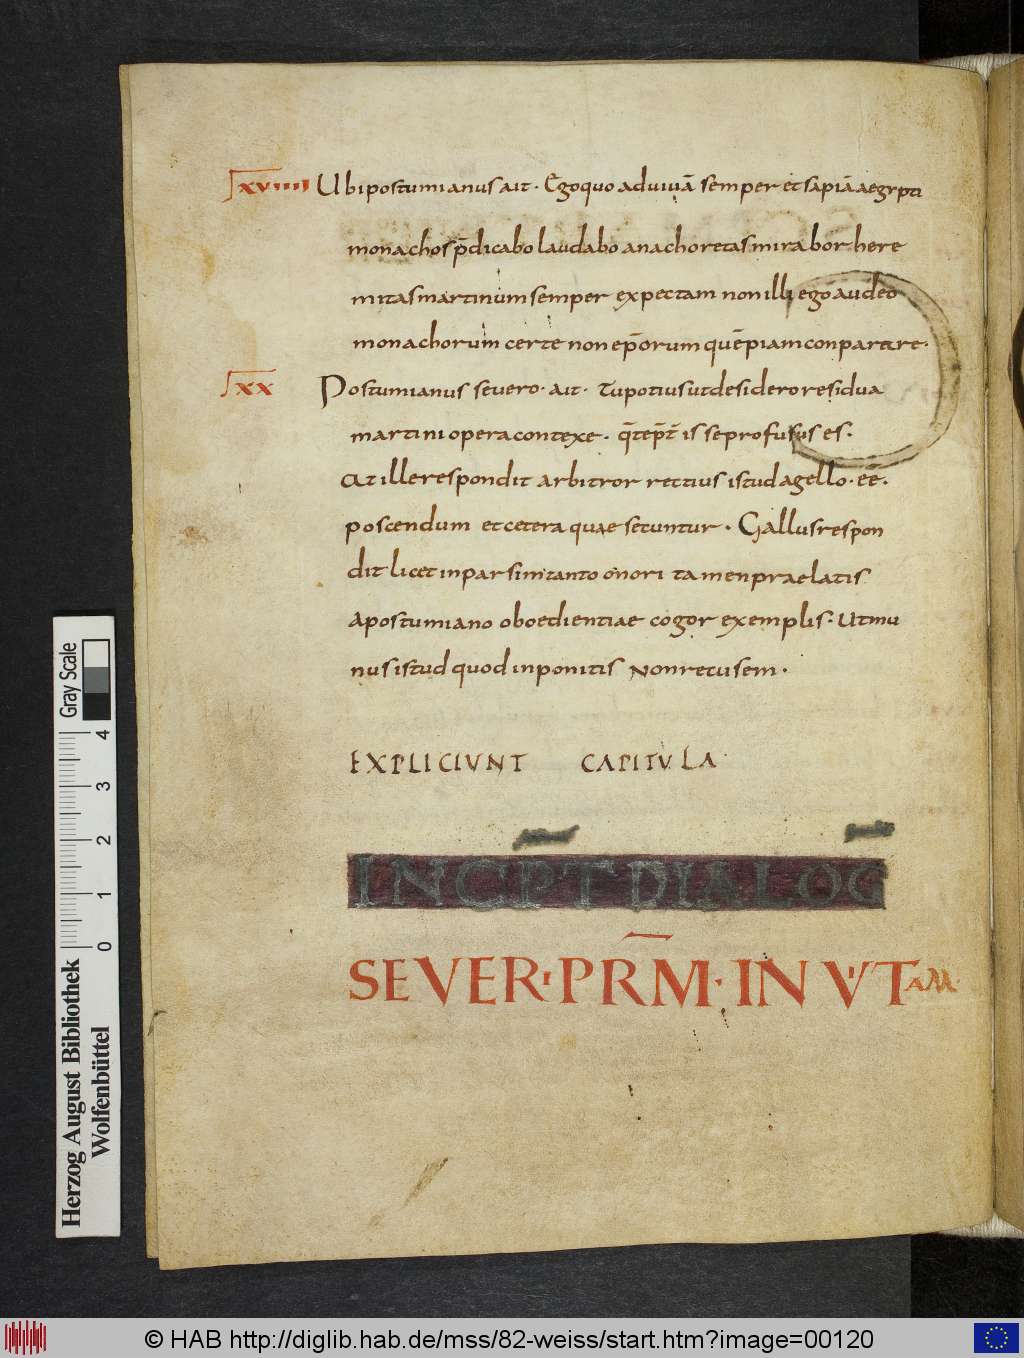 XVIIII Ubi postumianus ait · Ego quo ad vivā semper et sapiā aegypti
monachos p̄dicabo laudabo anachoretas mirabor here
mitas martinum semper expectam non illi ego audeo
monachorum certe non ep̄orum quēpiam conparare ·
XX Postumianus severo · ait · Tu potius ut desidero residua
martini opera contexe · is se profusus es ·
At ille respondit arbitror rectius istud a gello · eē ·
poscendum et cetera quae secuntur · Gallus respon
dit licet inpar sim tanto onori tamen praelatis
a postumiano oboedientiae cogor exemplis · Ut mu
nus istud quod inponitis Non recusem ·
EXPLICIUNT CAPITULA
INCPT DIALOG
SEVER · PRM̄ · IN VITAM
Gray Scale
4 3 2 1 0
Herzog August Bibliothek
Wolfenbüttel
© HAB http://diglib.hab.de/mss/82-weiss/start.htm?image=00120